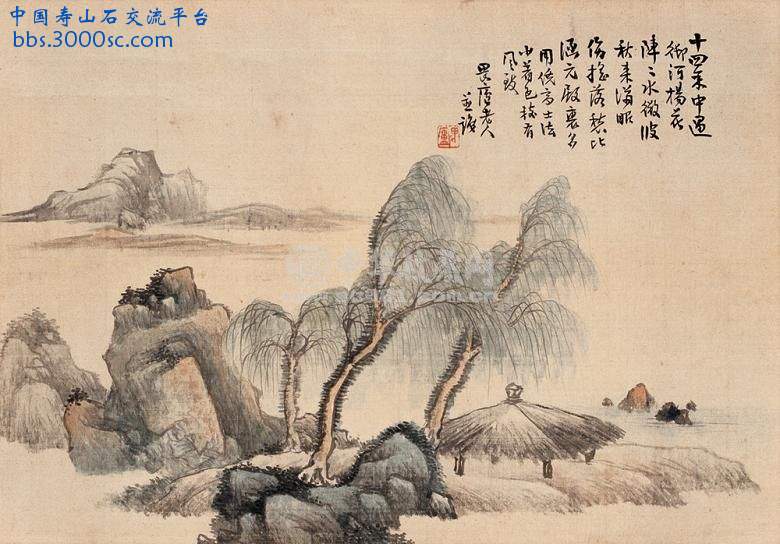 中国寿山石交流平台
bbs.3000sc.com
十四年中過
御河楊花
陣〻水微波
秋来滿眼
傷搖落愁比
涵元殿裏多
用倪高士法
小著色極有
風致
畏廬老人
並識